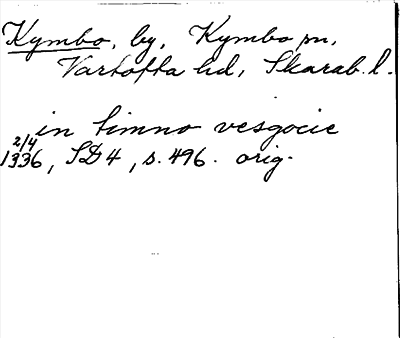 Kymbo, by, Kymbo sn,
Vartofta hd, Skarab. l.
in limno vesgocie
2/4
1336, SD 4, s. 496. orig.